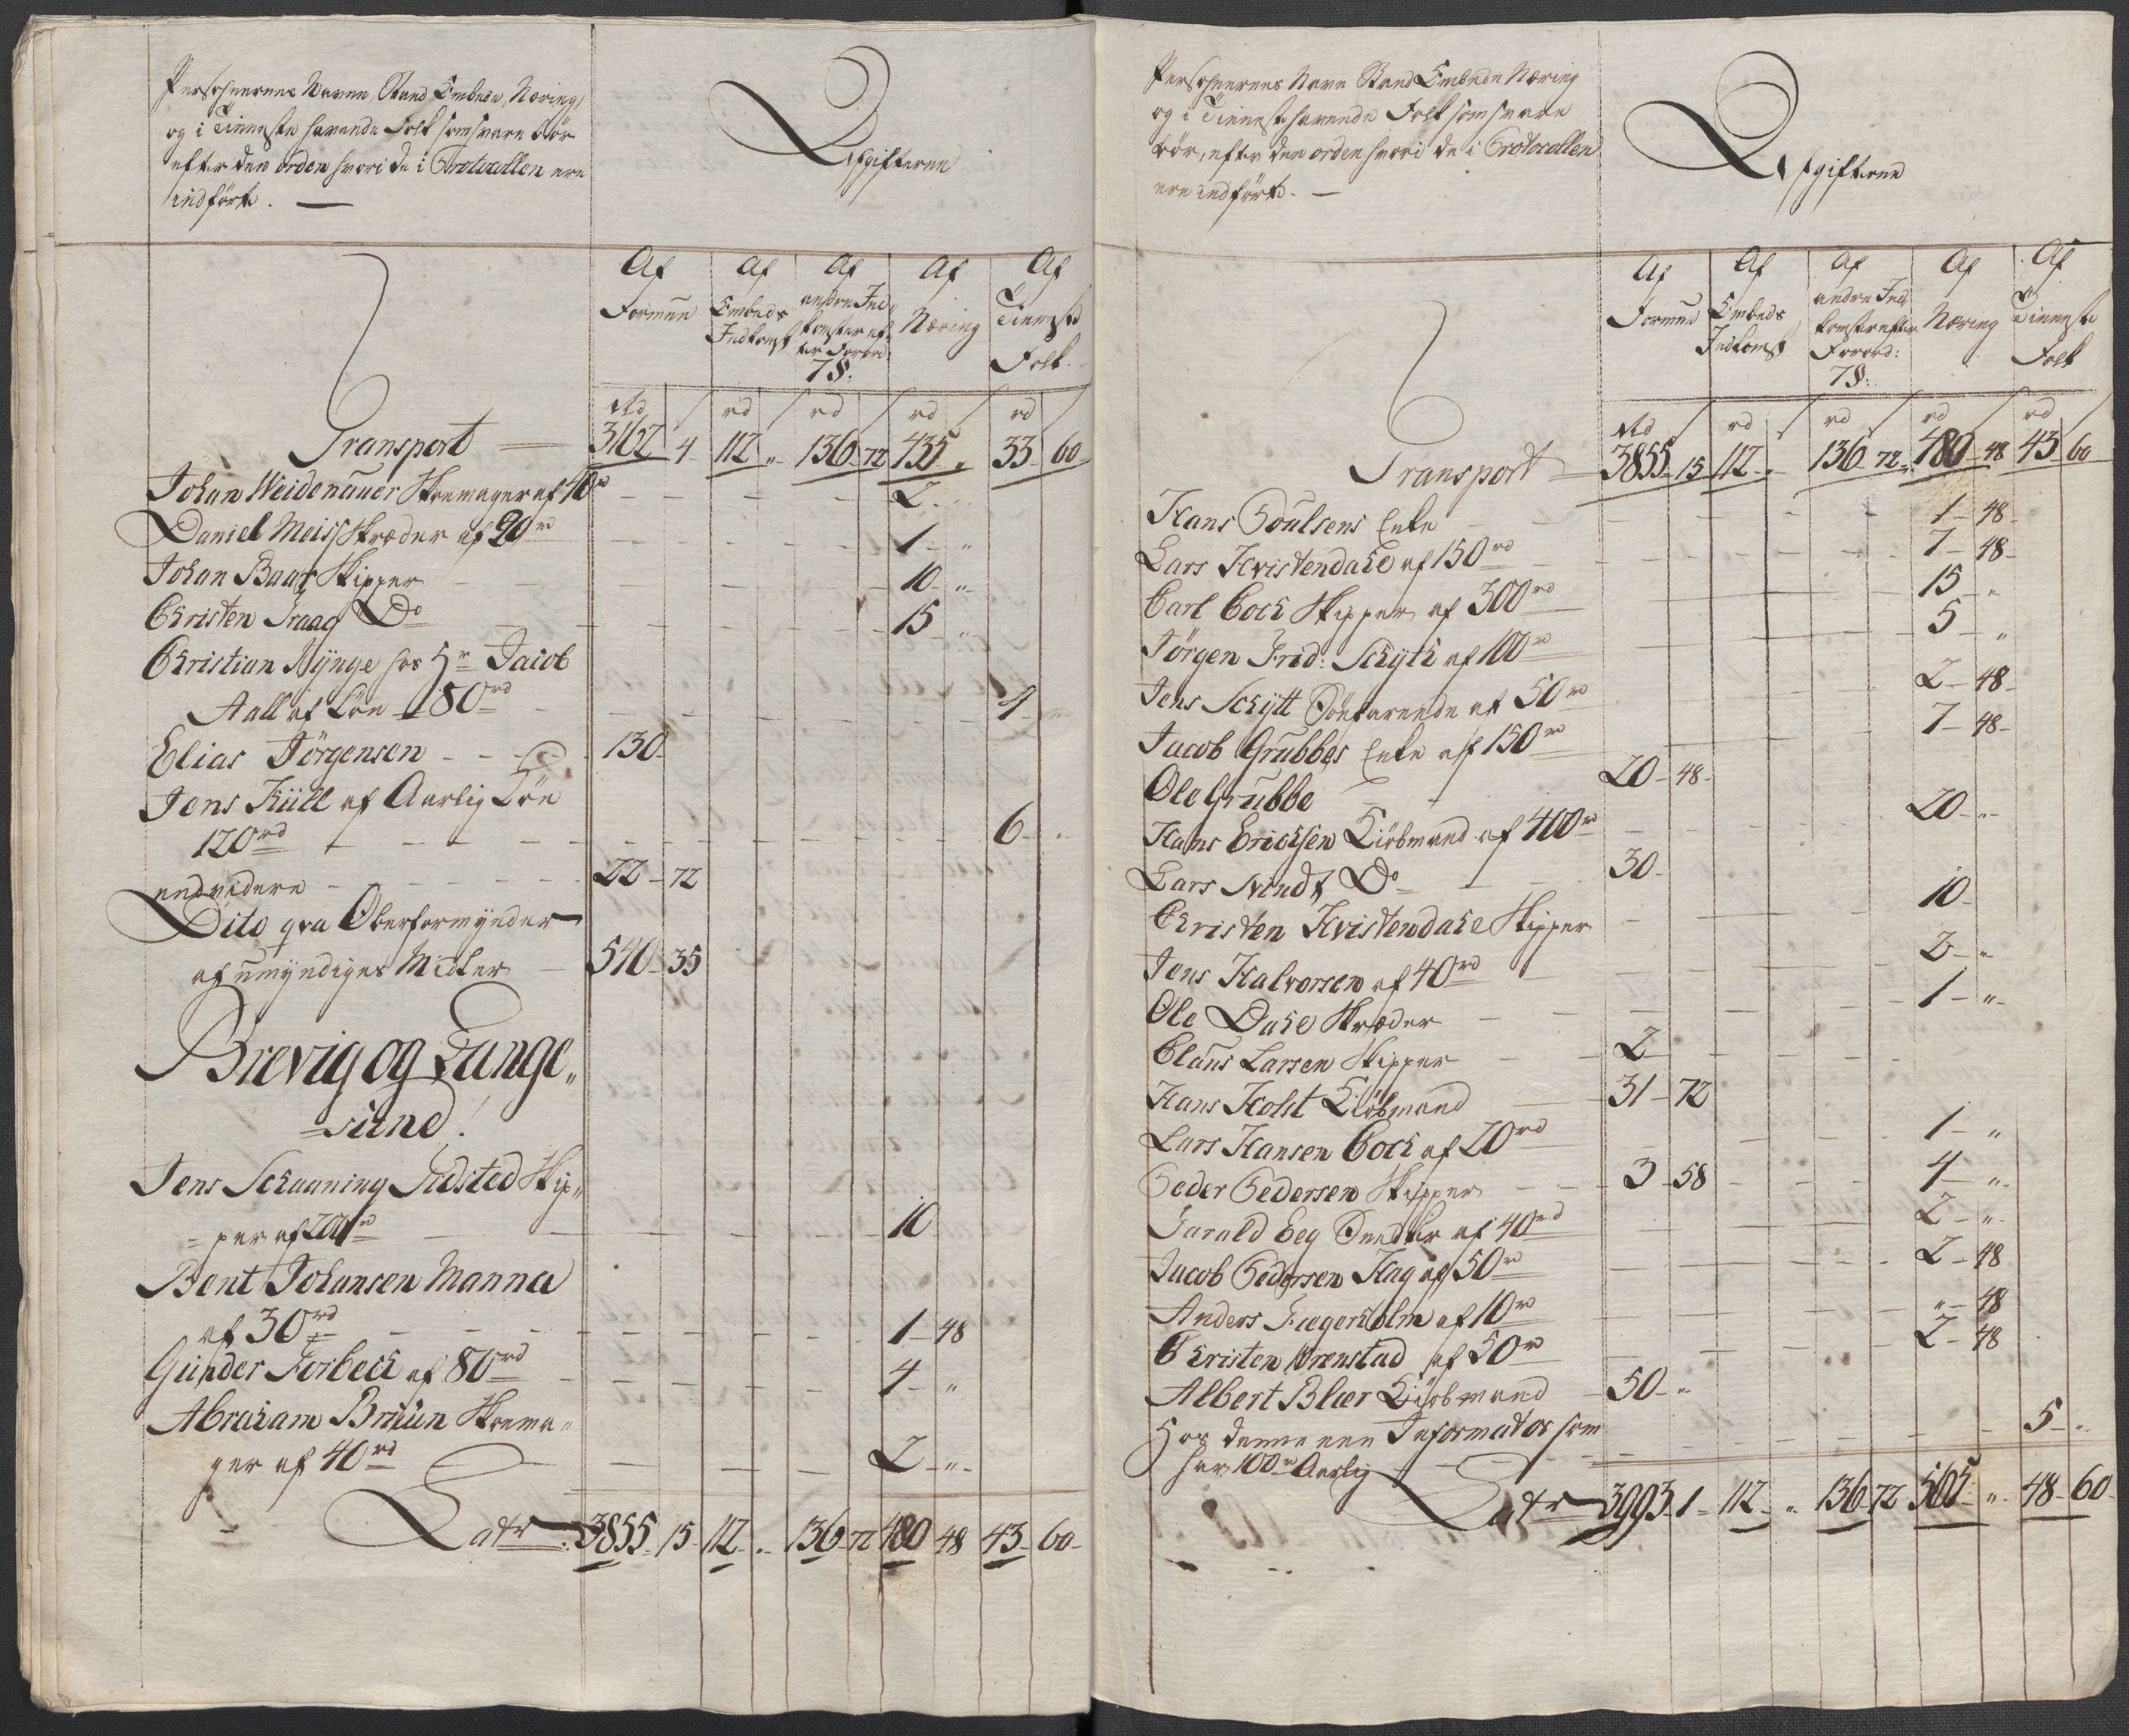 Personernes Navne, Stand Embede, Næring,
og i Tienneste havende Folk som svare bör
efter den orden hvori de i Protocollen ere
indförte. —
Afgifterne
Af Formue
Af Embeds Indkomst
Af andre Ind komster ef, ter Forord: 7 §:
Af Næring
Af Tienneste Folk.
rd / rd / rd / rd / rd /
Transport — 3162 4 112 „ 136 72 435 „ 33 60
Johan Weidenauer Skomager af 40 rd 2 „
Daniel Meiss Skræder af 20 rd 1 „
Johan Baar Skipper 10 „
Christen Traag Do 15 „
Christian Nÿnge hos Hr Jacob
Aall af Lön 80 rd 4 „
Elias Jörgensen 130
Jens Küll af Aarlig Lön
120 rd 6 „
endvidere 22 72
Dito qva Oberformÿnder
af umÿndiges Midler 540 35
Brevig og Lange„
=sund!
Jens Schaaning Sidsted Skip„
=per af 200 rd 10
Bent Johansen Manna
af 30 rd 1 48
Gunder Forbech af 80 rd 4 „
Abraham Bruun Skoma„
ger af 40 rd 2 „
Latr 3855 15 112 „ 136 72 480 48 43 60
Personernes Navne Stand Embede Næring
og i Tienneste havende Folk som svare
bör, efter den orden hvori de i Protocollen
ere indförte. —
Afgifterne
Af Formue
Af Embeds Indkomst
Af andre Ind komster efter Forord: 7 §:
Af Næring
Af Tienneste Folk
rd / rd / rd / rd / rd /
Transport 3855 15 112 „ 136 72 480 48 43 60
Hans Poulsens Enke 1 48
Lars Kvistendahl af 150 rd 7 48
Carl Coch Skipper af 300 rd 15 „
Jörgen Frid: Schÿtt af 100 rd 5 „
Jens Schÿtt Söefarende af 50 rd 2 48
Jacob Grubbes Enke af 150 rd 7 48
Ole Grubbe 20 48
Hans Erichsen Kiöbmand af 400 rd 20 „
Lars Svindt Do 30
Christen Kvistendahl Skipper 10
Jens Halvorsen af 40 rd 2 „
Ole Dahl Skræder 1 „
Claus Larsen Skipper 2
Hans Holst Kiöbmand 31 72
Lars Hansen Coch af 20 rd 1 „
Peder Pedersen Skipper 3 58 4 „
Harald Eeg Snedker af 40 rd 2 „
Jacob Pedersen Hag af 50 rd 2 48
Anders Fægerholm af 10 rd „ 48
Christen Ørenstad af 50 rd 2 48
Albert Blær Kiöbmand 50 „
Hos denne een Informator som
har 100 rd Aarlig 5 „
Latr 3993 1 112 „ 136 72 565 „ 48 60